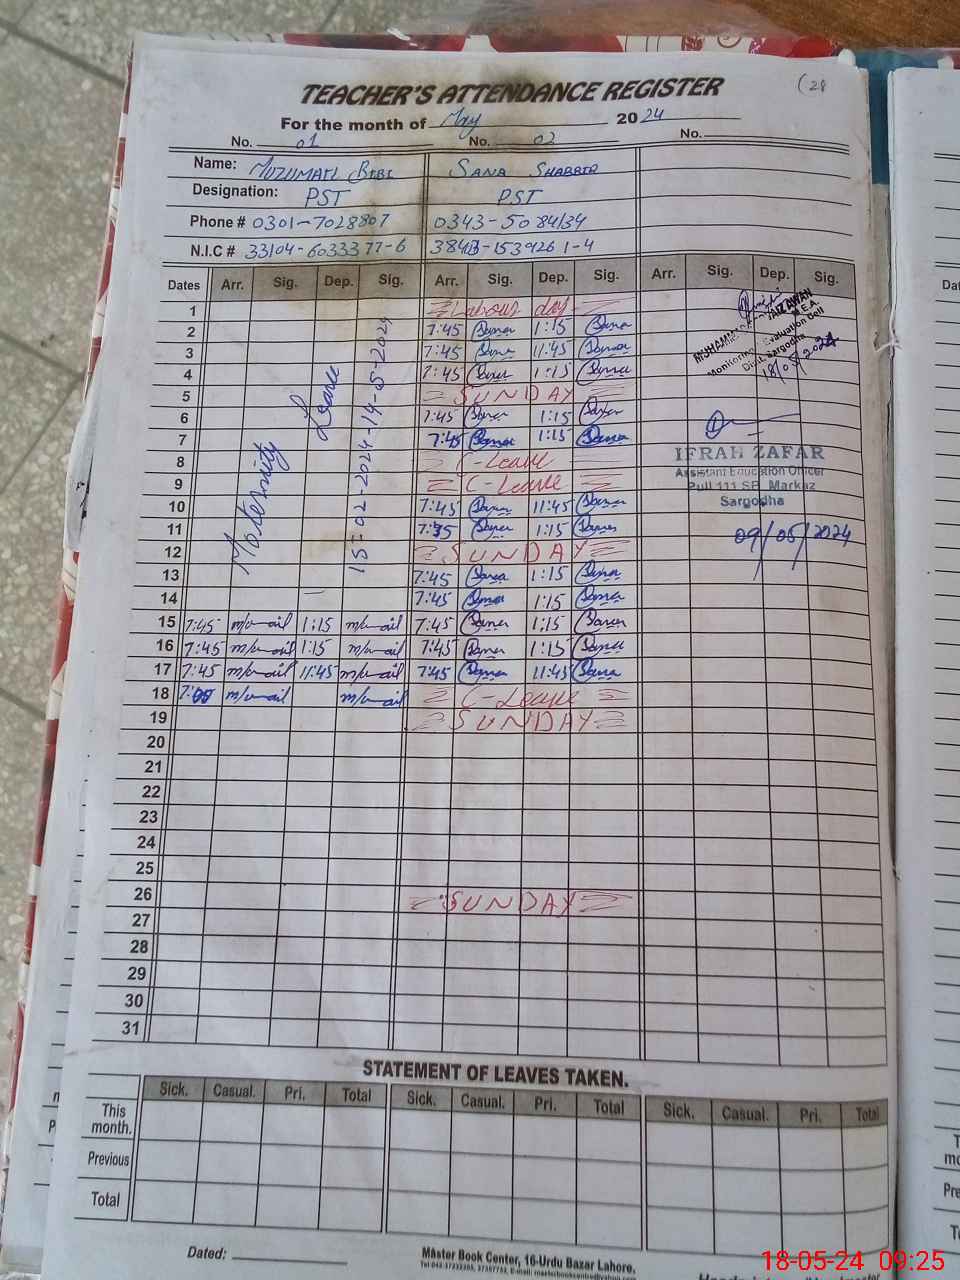 TEACHER'S ATTENDANCE REGISTER (28
For the month of May 2024
No. 01 No. 02 No.
Name: MUZUMAIL BIBI SANA SHABBIR
Designation: PST PST
Phone # 0301-7028807 0343-5084134
N.I.C # 33104-6033377-6
Dates Arr. Sig. Dep. Sig. Arr. Sig. Dep. Sig. Arr. Sig. Dep. Sig.
Maternity Leave
15-02-2024-14-05-2024
1 Labour day
2 7:45 Sana 1:15 Sana
3 7:45 Sana 11:45 Sana
4 7:45 Sana 1:15 Sana
5 SUNDAY
6 7:45 Sana 1:15 Sana
7 7:45 Sana 1:15 Sana
8 C-Leave
9 C-Leave
10 7:45 Sana 11:45 Sana
11 Sana 1:15 Sana
12 SUNDAY
13 7:45 Sana 1:15 Sana
14 7:45 Sana 1:15 Sana
15 7:45 m/mail 1:15 m/mail 7:45 Sana 1:15 Sana
16 7:45 m/mail 1:15 m/mail 7:45 Sana 1:15 Sana
17 7:45 m/mail 11:45 m/mail 7:45 Sana 11:45 Sana
18 m/mail m/mail C-Leave
19 SUNDAY
20
21
22
23
24
25
26 SUNDAY
27
28
29
30
31
AWAN
M.E.A.
Monitoring Evaluation Cell
Distt. Sargodha
18/05/2024
IFRAH ZAFAR
Assistant Education Officer
Pull 111 SB, Markaz
Sargodha
09/05/2024
STATEMENT OF LEAVES TAKEN.
Sick. Casual. Pri. Total Sick. Casual. Pri. Total Sick. Casual. Pri. Total
This month.
Previous
Total
Dated:
Master Book Center, 16-Urdu Bazar Lahore,
18-05-24 09:25